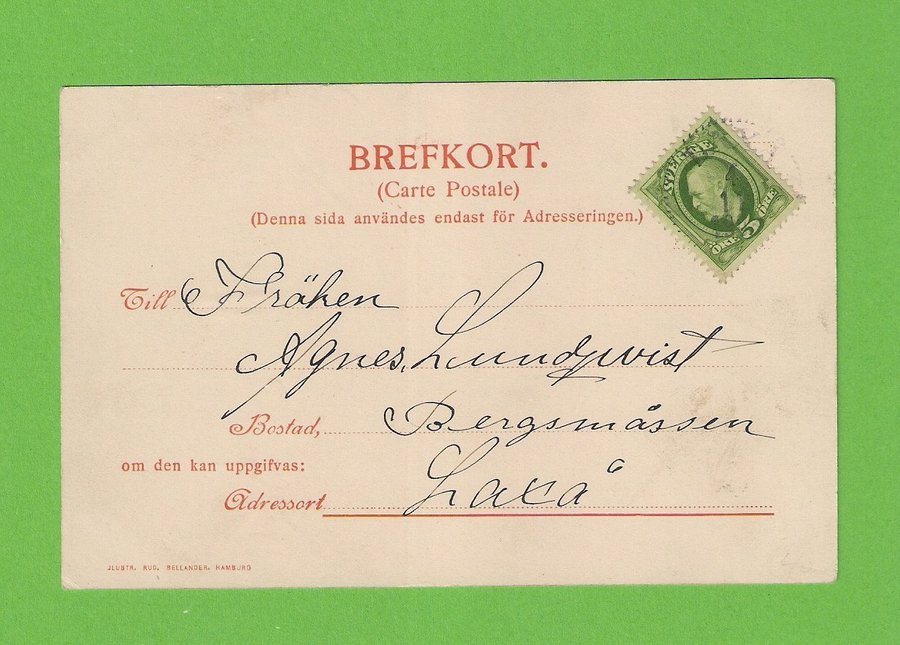 BREFKORT.
(Carte Postale)
(Denna sida användes endast för Adresseringen.)
SVERIGE
ÖRE 5 ÖRE
Till Fröken
Agnes Lundqvist
Bostad, Bergsmåssen
om den kan uppgifvas:
Adressort Laxå
JLUSTR. RUD. BELLANDER, HAMBURG